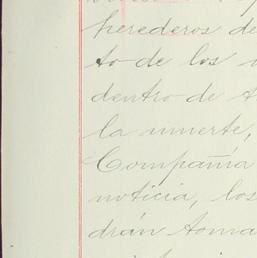 herederos de
to de los
dentro de
la muerte,
Compañía
noticia, los
drán toma